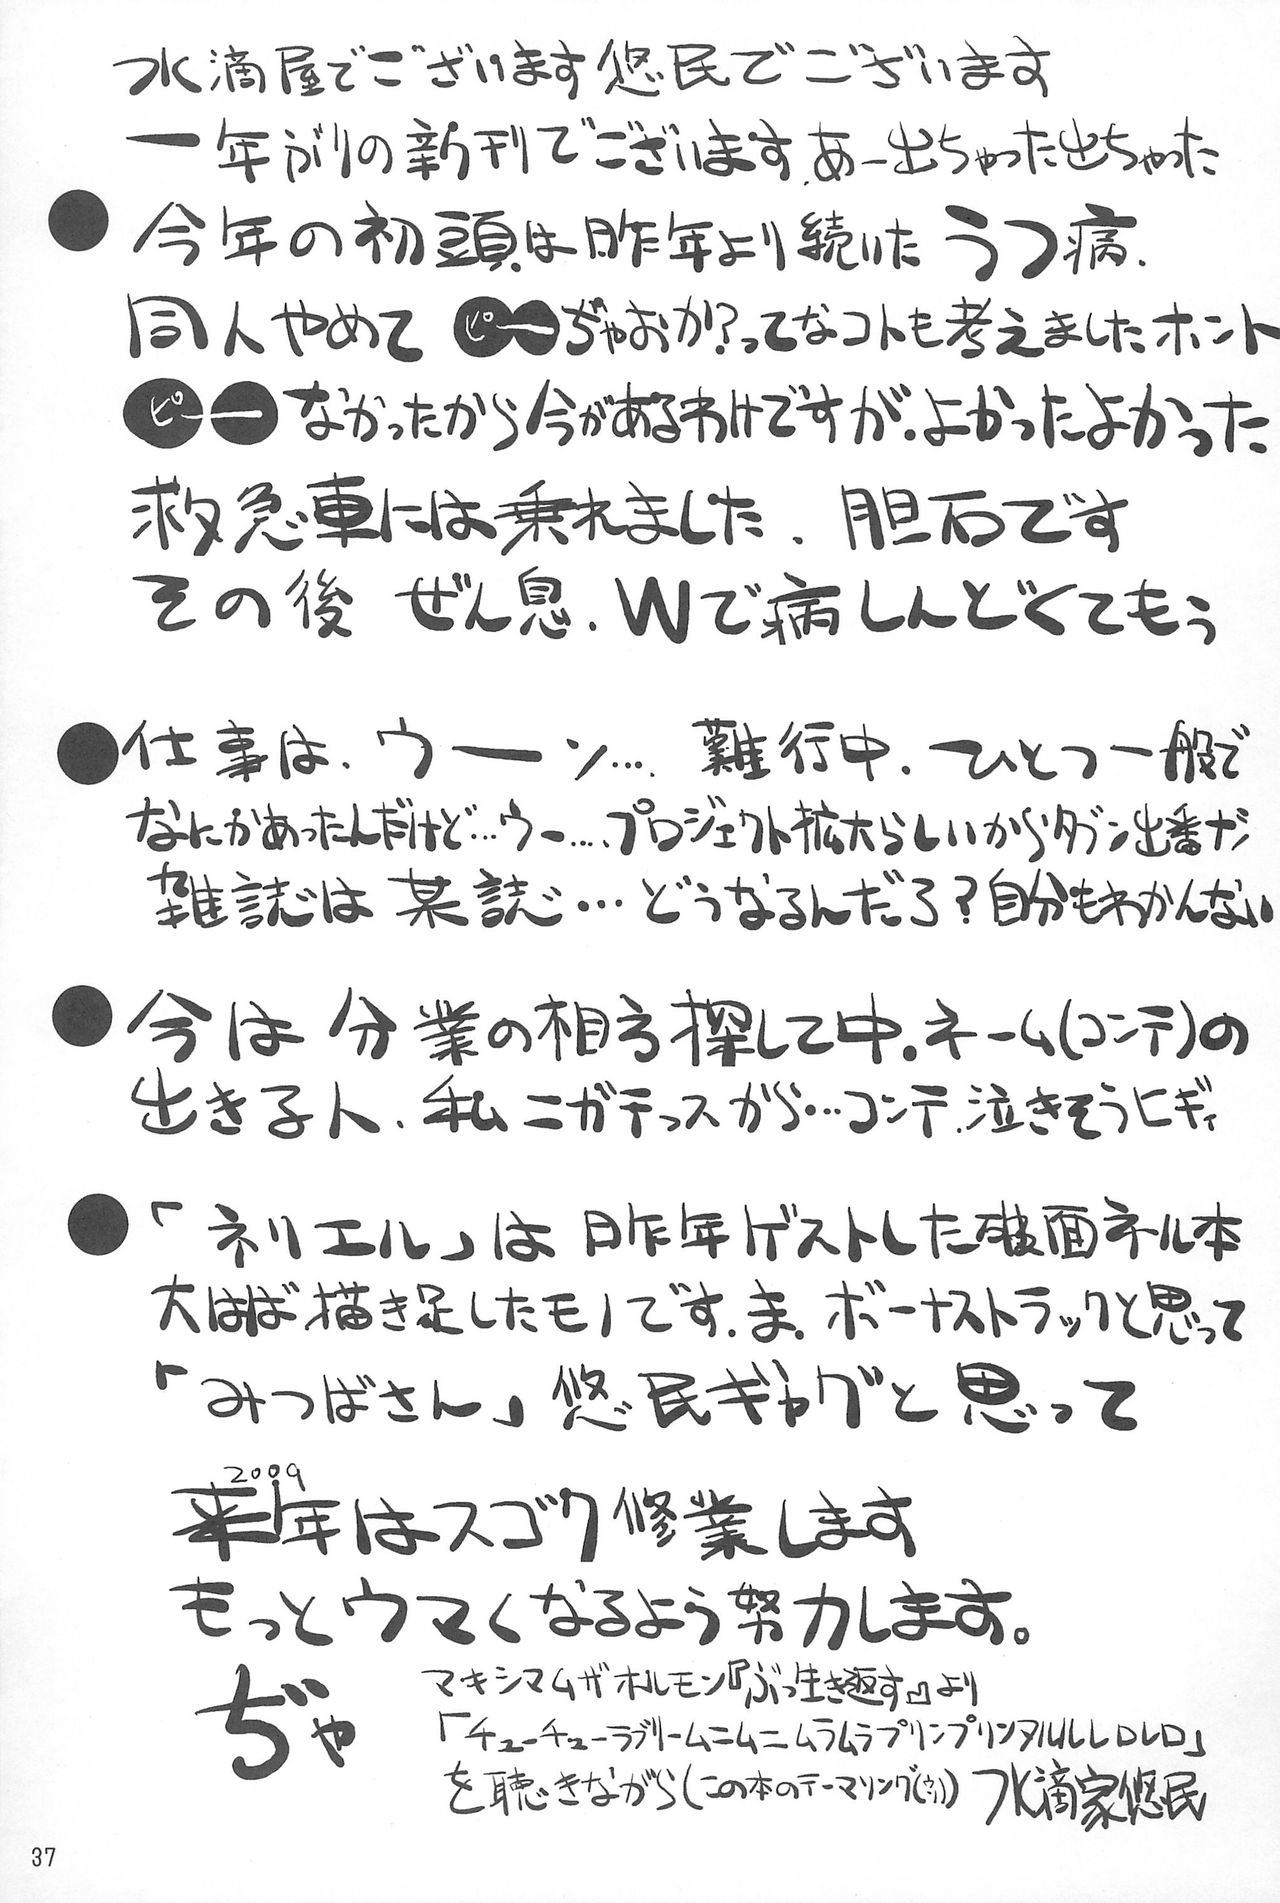 水滴屋でございます 悠民でございます
一年ぶりの新刊でございます、あー出ちゃった出ちゃった
今年の初頭は昨年より続いた うつ病、
同人やめて ピーぢゃおか?ってなコトも考えましたホント
ピーなかったから今があるわけですが、よかったよかった
救急車には乗れました、胆石です
その後 ぜん息、Wで病しんどくてもぅ
仕事は、ウーン… 難行中、ひとつ一般で
なにかあったんだけど…ウー…、プロジェクト拡大らしいからタブン出番ナシ
雑誌は 某誌…どうなるんだろ?自分もわかんない
今は 分業の相方探して中。ネーム(コンテ)の
出きる人、私ニガテっスから…コンテ、泣きそうヒギィ
「ネリエル」は 昨年ゲストした破面ネル本
大はば描き足したモノです、ま、ボーナストラックと思って
「みつばさん」悠民ギャグと思って
2009
来年はスゴク修業します
もっとウマくなるよう努力します。
ぢゃ
マキシマムザホルモン『ぶっ生き返す』より
「チューチューラブリームニムニムラムラプリンプリンヌルルレロレロ」
を聴きながら(この本のテーマソング(ウソ)) 水滴家悠民
37